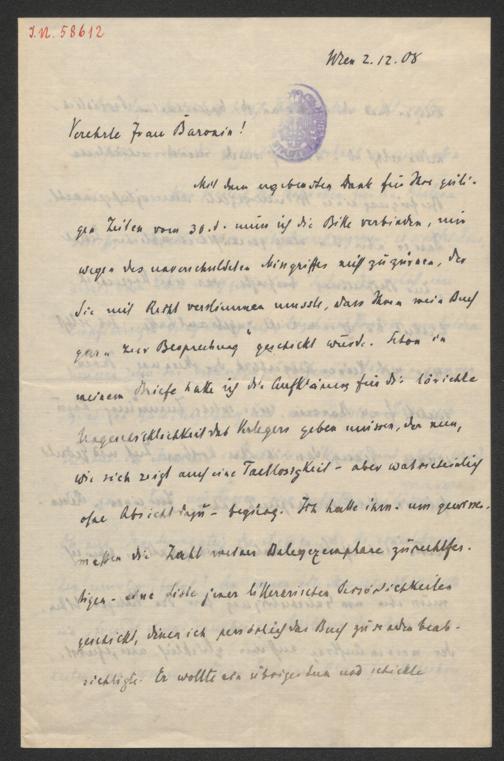 J.N. 58612
Wien 2.12.08
Verehrte Frau Baronin!
Mit dem ergebensten Dank für Ihre güti-
gen Zeilen vom 30. d. muss ich die Bitte verbinden, mir
wegen des unverschuldeten Missgriffes nicht zu zürnen, der
Sie mit Recht verstimmen musste, dass Ihnen mein Buch
"zur Besprechung" geschickt wurde. Schon in
meinem Briefe hatte ich die Aufklärung für die törichte
Ungeschicklichkeit des Verlegers geben müssen, der nun,
wie sich zeigt auch eine Taktlosigkeit – aber wahrscheinlich
ohne Absicht dazu – beging. Ich hatte ihm – um gewisser-
massen die Zahl meiner zu rechtfer-
tigen – eine Liste jener litterarischen Persönlichkeiten
geschickt, denen ich persönlich das Buch zu senden beab-
sichtigte. Er wollte ein übriges tun und schickte